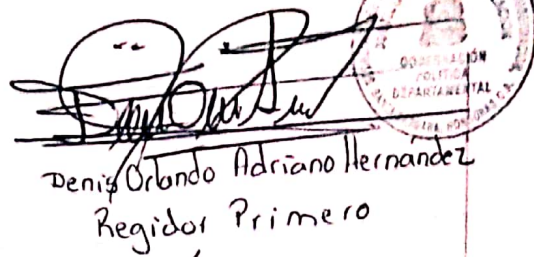 GOBERNACIÓN
POLÍTICA
DEPARTAMENTAL
Denis Orlando Adriano Hernández
Regidor Primero